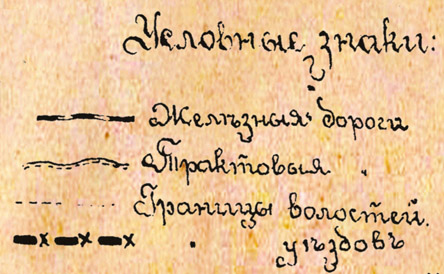 Условные знаки:
Желѣзныя дороги
Трактовыя "
Границы волостей.
" уѣздовъ